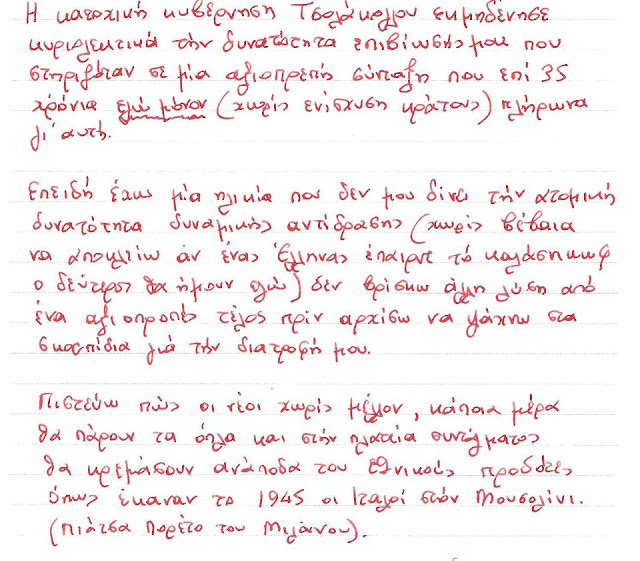 Η κατοχική κυβέρνηση Τσολάκογλου εκμηδένησε
κυριολεκτικά την δυνατότητα επιβίωσής μου που
στηριζόταν σε μία αξιοπρεπή σύνταξη που επί 35
χρόνια εγώ μόνον (χωρίς ενίσχυση κράτους) πλήρωνα
γι' αυτή.
Επειδή έχω μία ηλικία που δεν μου δίνει την ατομική
δυνατότητα δυναμικής αντίδρασης (χωρίς βέβαια
να αποκλείω αν ένας Έλληνας έπαιρνε το καλάσηκωφ
ο δεύτερος θα ήμουν εγώ) δεν βρίσκω άλλη λύση από
ένα αξιοπρεπές τέλος πρίν αρχίσω να ψάχνω στα
σκουπίδια γιά την διατροφή μου.
Πιστεύω πώς οι νέοι χωρίς μέλλον, κάποια μέρα
θα πάρουν τα όπλα και στην πλατεία συντάγματος
θα κρεμάσουν ανάποδα τους εθνικούς προδότες
όπως έκαναν το 1945 οι Ιταλοί στόν Μουσολίνι.
(Πιάτσα Πορέτο του Μιλάνου).